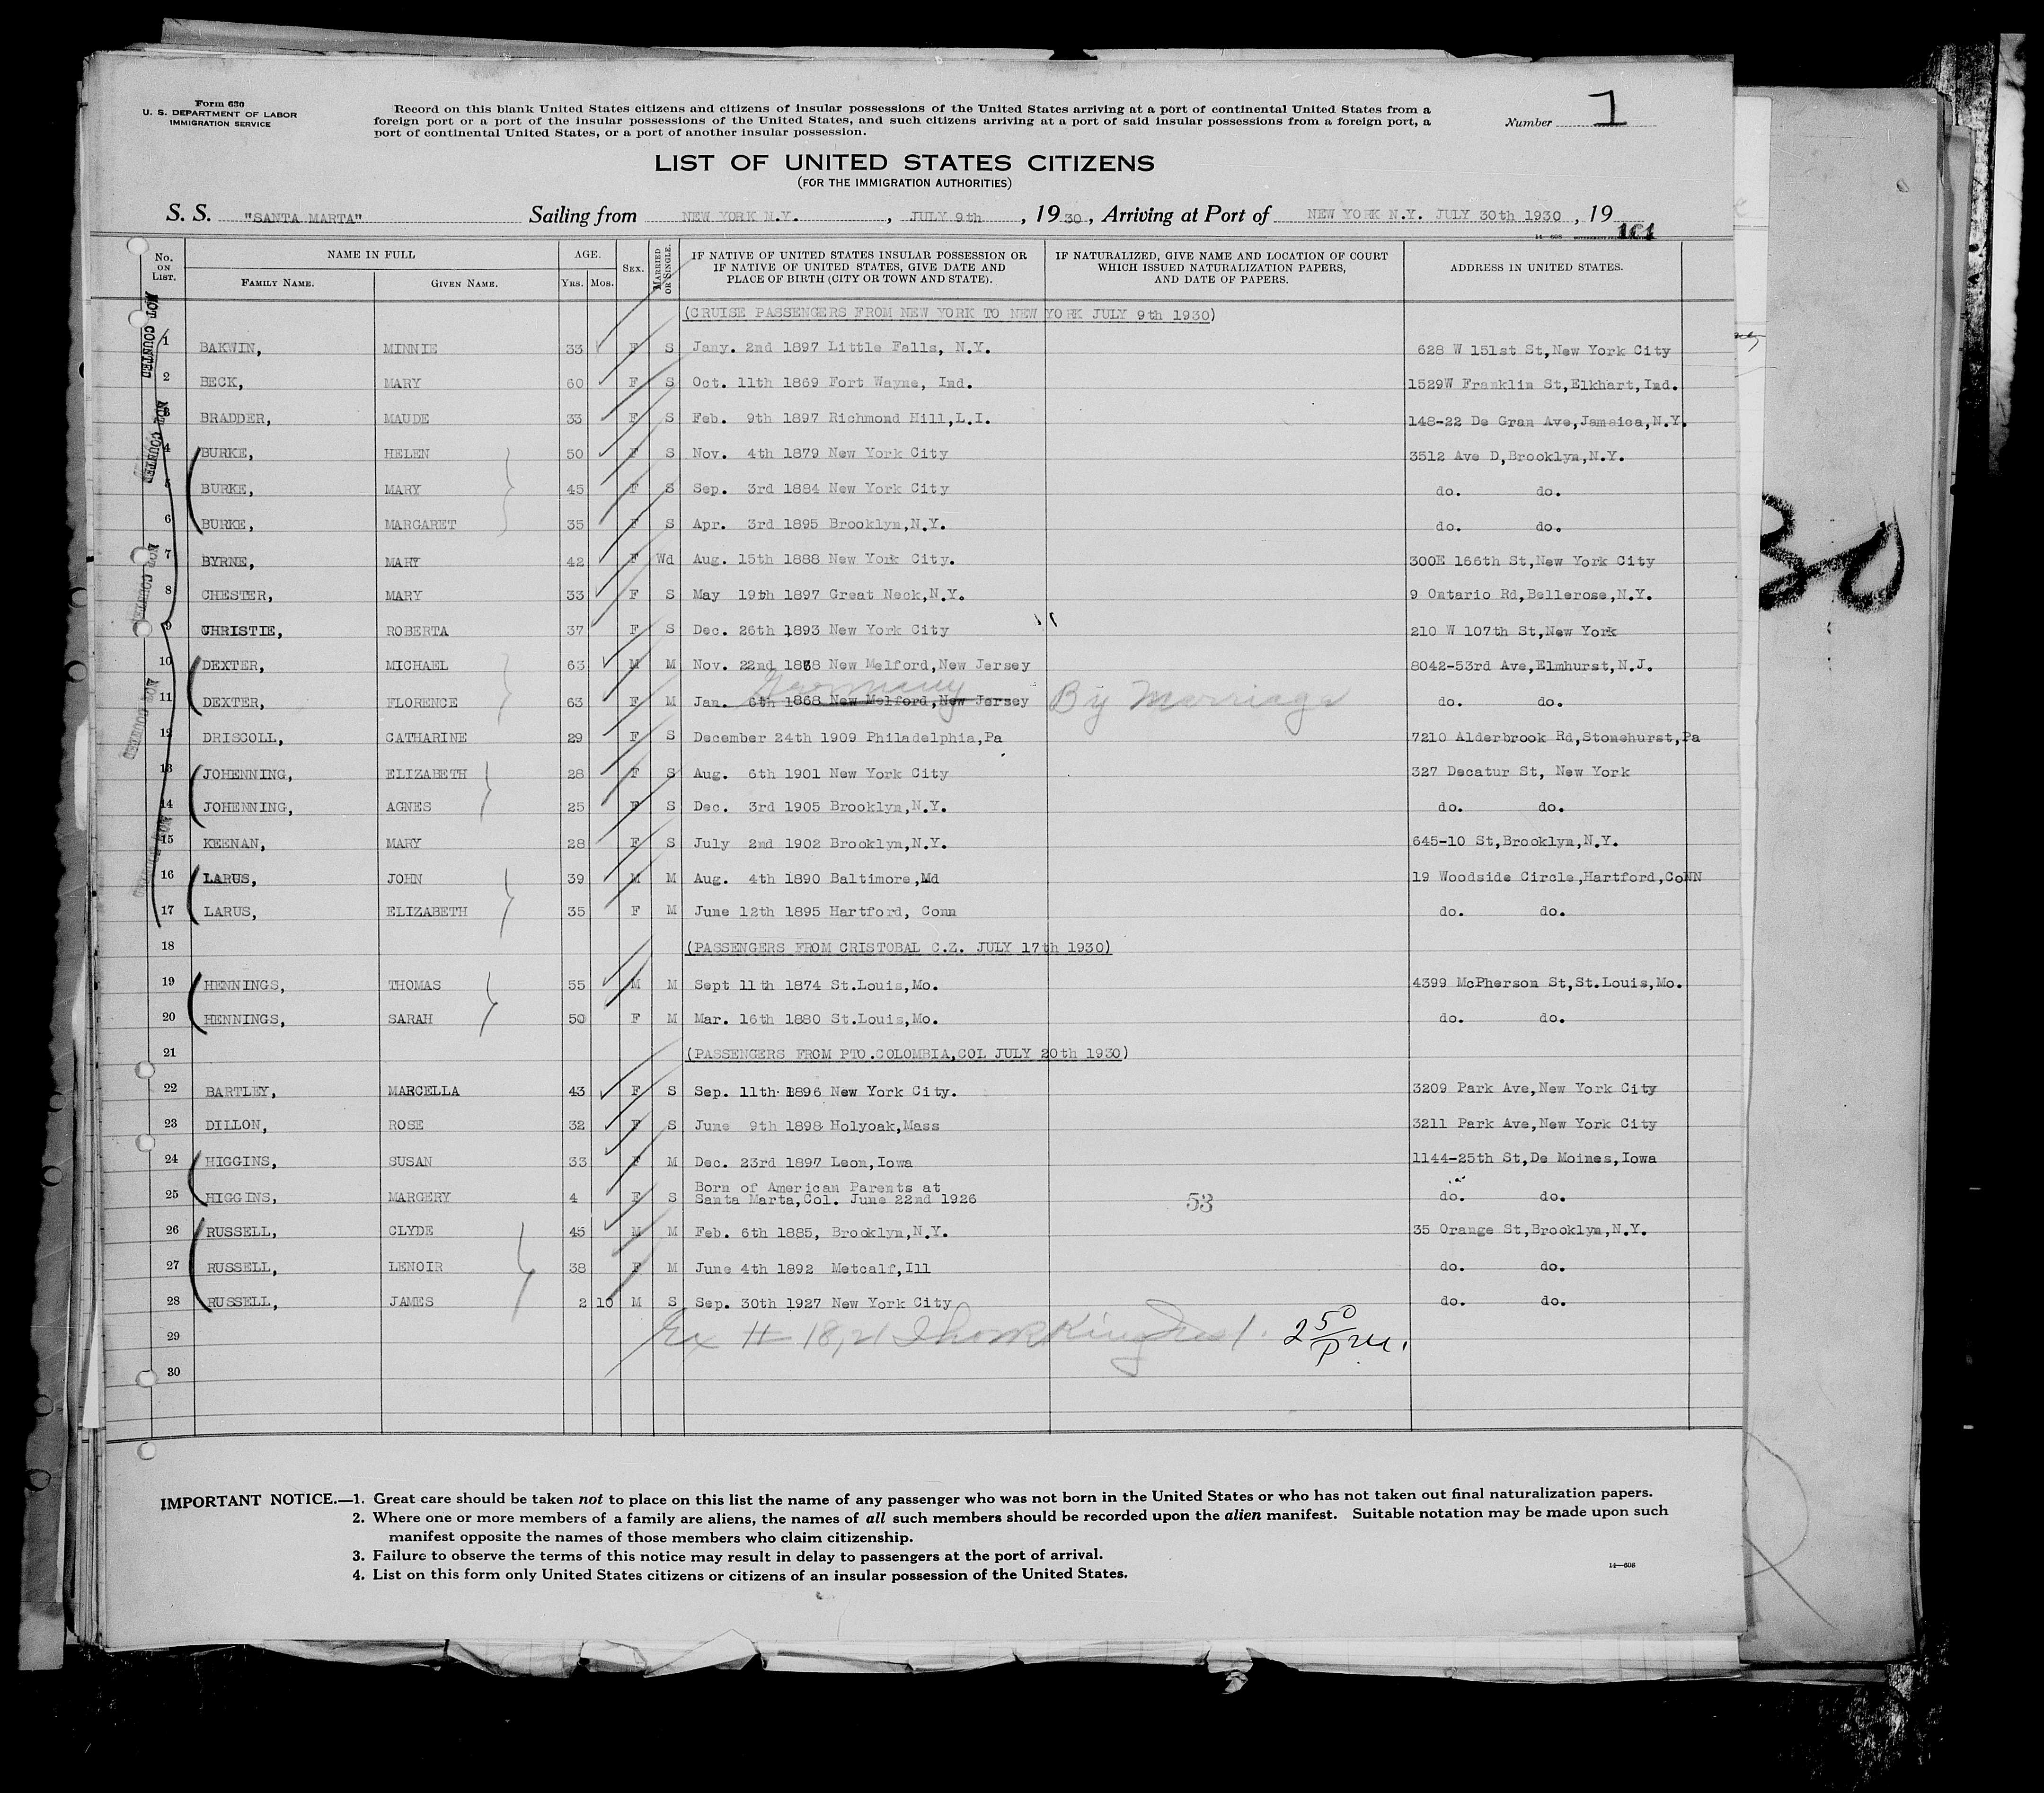 Form 630
U. S. DEPARTMENT OF LABOR
IMMIGRATION SERVICE
Record on this blank United States citizens and citizens of insular possessions of the United States arriving at a port of continental United States from a
foreign port or a port of the insular possessions of the United States, and such citizens arriving at a port of said insular possessions from a foreign port, a
port of continental United States, or a port of another insular possession.
Number 7
LIST OF UNITED STATES CITIZENS
(FOR THE IMMIGRATION AUTHORITIES)
S. S. "SANTA MARTA" Sailing from NEW YORK N.Y. , JULY 9th , 1930, Arriving at Port of NEW YORK N.Y. JULY 30th 1930 , 19
161
No. ON LIST. NAME IN FULL FAMILY NAME. GIVEN NAME. AGE. YRS. MOS. SEX. MARRIED OR SINGLE. IF NATIVE OF UNITED STATES INSULAR POSSESSION OR IF NATIVE OF UNITED STATES, GIVE DATE AND PLACE OF BIRTH (CITY OR TOWN AND STATE). IF NATURALIZED, GIVE NAME AND LOCATION OF COURT WHICH ISSUED NATURALIZATION PAPERS, AND DATE OF PAPERS. ADDRESS IN UNITED STATES.
NOT COUNTED
(CRUISE PASSENGERS FROM NEW YORK TO NEW YORK JULY 9th 1930)
1 BAKWIN, MINNIE 33 F S Jany. 2nd 1897 Little Falls, N.Y. 628 W 151st St,New York City
2 BECK, MARY 60 F S Oct. 11th 1869 Fort Wayne, Ind. 1529W Franklin St,Elkhart,Ind.
3 BRADDER, MAUDE 33 F S Feb. 9th 1897 Richmond Hill,L.I. 148-22 De Gran Ave,Jamaica,N.Y.
4 BURKE, HELEN 50 F S Nov. 4th 1879 New York City 3512 Ave D,Brooklyn,N.Y.
5 BURKE, MARY 45 F S Sep. 3rd 1884 New York City do. do.
6 BURKE, MARGARET 35 F S Apr. 3rd 1895 Brooklyn,N.Y. do. do.
7 BYRNE, MARY 42 F Wd Aug. 15th 1888 New York City. 300E 166th St,New York City
8 CHESTER, MARY 33 F S May 19th 1897 Great Neck,N.Y. 9 Ontario Rd,Bellerose,N.Y.
9 CHRISTIE, ROBERTA 37 F S Dec. 26th 1893 New York City 210 W 107th St,New York
10 DEXTER, MICHAEL 63 M M Nov. 22nd 1868 New Melford,New Jersey 8042-53rd Ave,Elmhurst,N.J.
Germany
11 DEXTER, FLORENCE 63 F M Jan. 6th 1868 New Melford,New Jersey By Marriage do. do.
12 DRISCOLL, CATHARINE 29 F S December 24th 1909 Philadelphia,Pa 7210 Alderbrook Rd,Stonehurst,Pa
13 JOHENNING, ELIZABETH 28 F S Aug. 6th 1901 New York City 327 Decatur St, New York
14 JOHENNING, AGNES 25 F S Dec. 3rd 1905 Brooklyn,N.Y. do. do.
15 KEENAN, MARY 28 F S July 2nd 1902 Brooklyn,N.Y. 645-10 St,Brooklyn,N.Y.
16 LARUS, JOHN 39 M M Aug. 4th 1890 Baltimore,Md 19 Woodside Circle,Hartford,CoNN
17 LARUS, ELIZABETH 35 F M June 12th 1895 Hartford, Conn do. do.
18 (PASSENGERS FROM CRISTOBAL C.Z. JULY 17th 1930)
19 HENNINGS, THOMAS 55 M M Sept 11th 1874 St.Louis,Mo. 4399 McPherson St,St.Louis,Mo.
20 HENNINGS, SARAH 50 F M Mar. 16th 1880 St.Louis,Mo. do. do.
21 (PASSENGERS FROM PTO.COLOMBIA,COL JULY 20th 1930)
22 BARTLEY, MARCELLA 43 F S Sep. 11th 1896 New York City. 3209 Park Ave,New York City
23 DILLON, ROSE 32 F S June 9th 1898 Holyoak,Mass 3211 Park Ave,New York City
24 HIGGINS, SUSAN 33 F M Dec. 23rd 1897 Leon,Iowa 1144-25th St,De Moines,Iowa
Born of American Parents at
25 HIGGINS, MARGERY 4 F S Santa Marta,Col. June 22nd 1926 53 do. do.
26 RUSSELL, CLYDE 45 M M Feb. 6th 1885, Brooklyn,N.Y. 35 Orange St,Brooklyn,N.Y.
27 RUSSELL, LENOIR 38 F M June 4th 1892 Metcalf,Ill do. do.
28 RUSSELL, JAMES 2 10 M S Sep. 30th 1927 New York City do. do.
29 Ex # 18, 21 2 50 P m.
30
IMPORTANT NOTICE.—1. Great care should be taken not to place on this list the name of any passenger who was not born in the United States or who has not taken out final naturalization papers.
2. Where one or more members of a family are aliens, the names of all such members should be recorded upon the alien manifest. Suitable notation may be made upon such
manifest opposite the names of those members who claim citizenship.
3. Failure to observe the terms of this notice may result in delay to passengers at the port of arrival.
4. List on this form only United States citizens or citizens of an insular possession of the United States.
14—608
30